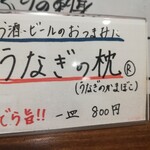 う酒・ビールのおつまみに
うなぎの枕®
(うなぎのかまぼこ)
でら旨!! 一皿 800円